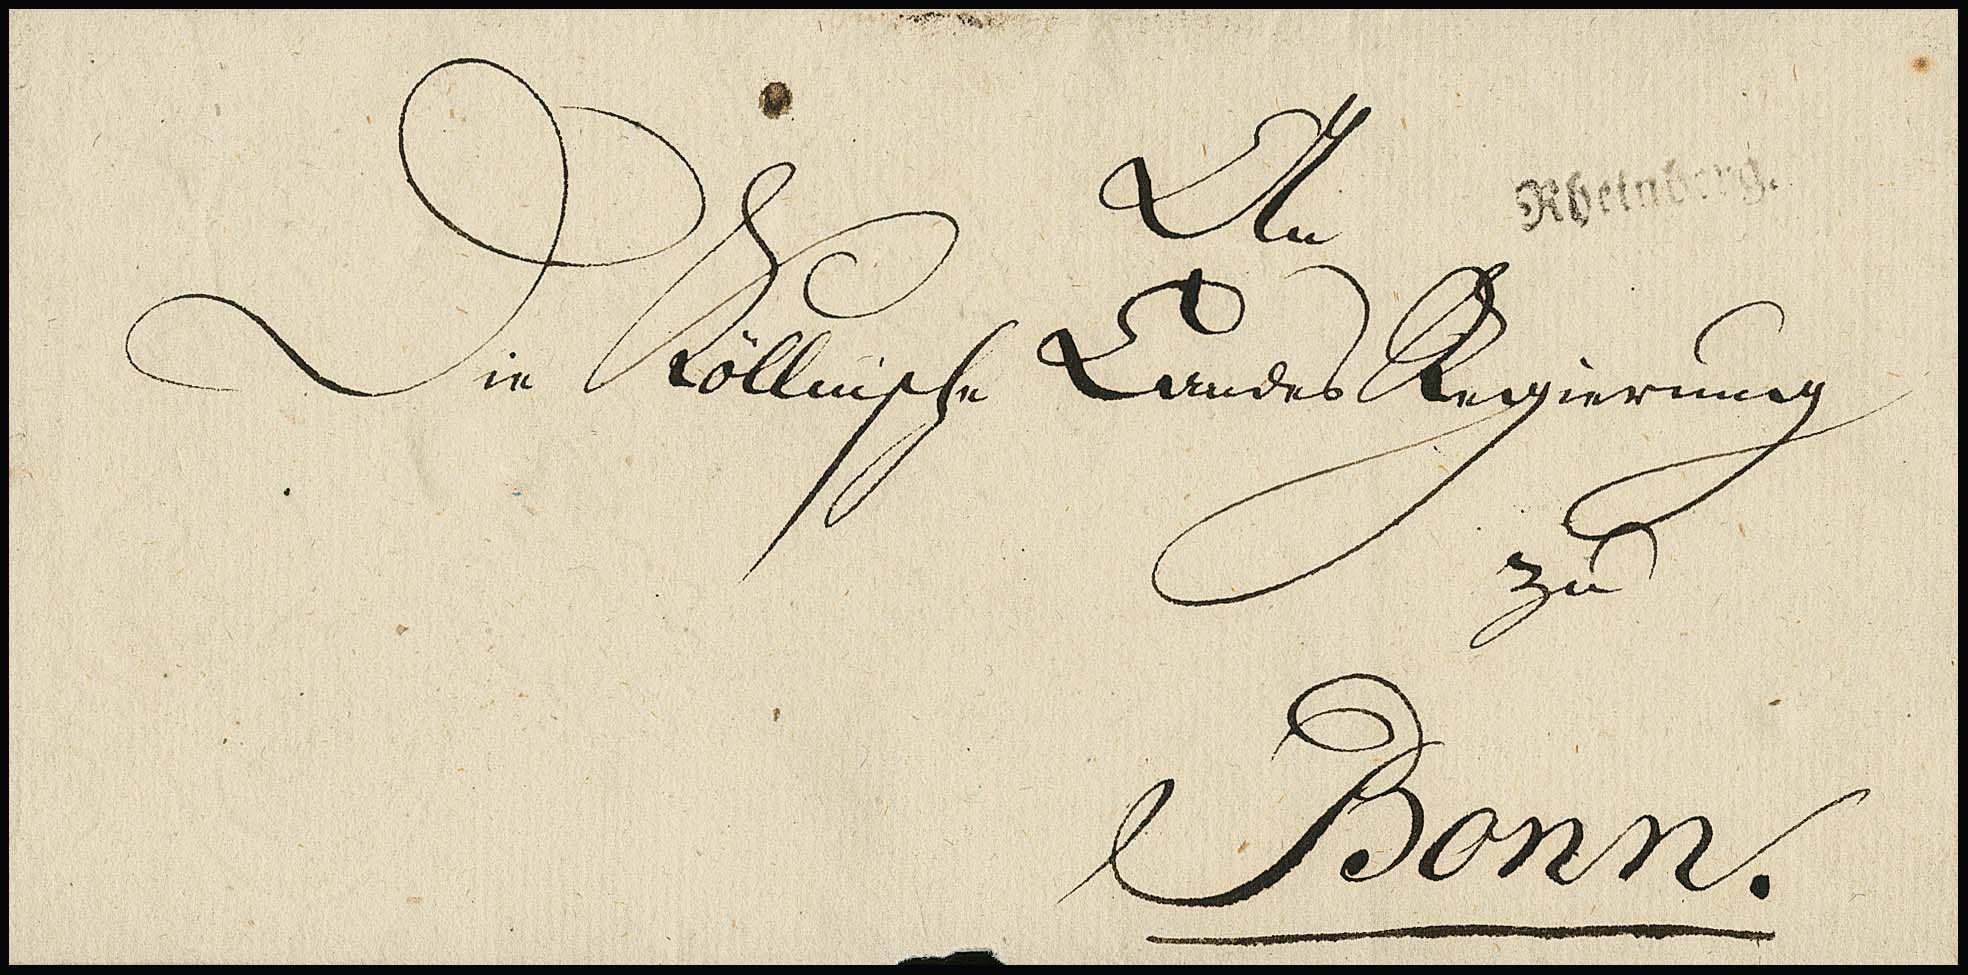 An
Rheinberg.
Die Köllnische Landes Regierung
zu
Bonn.